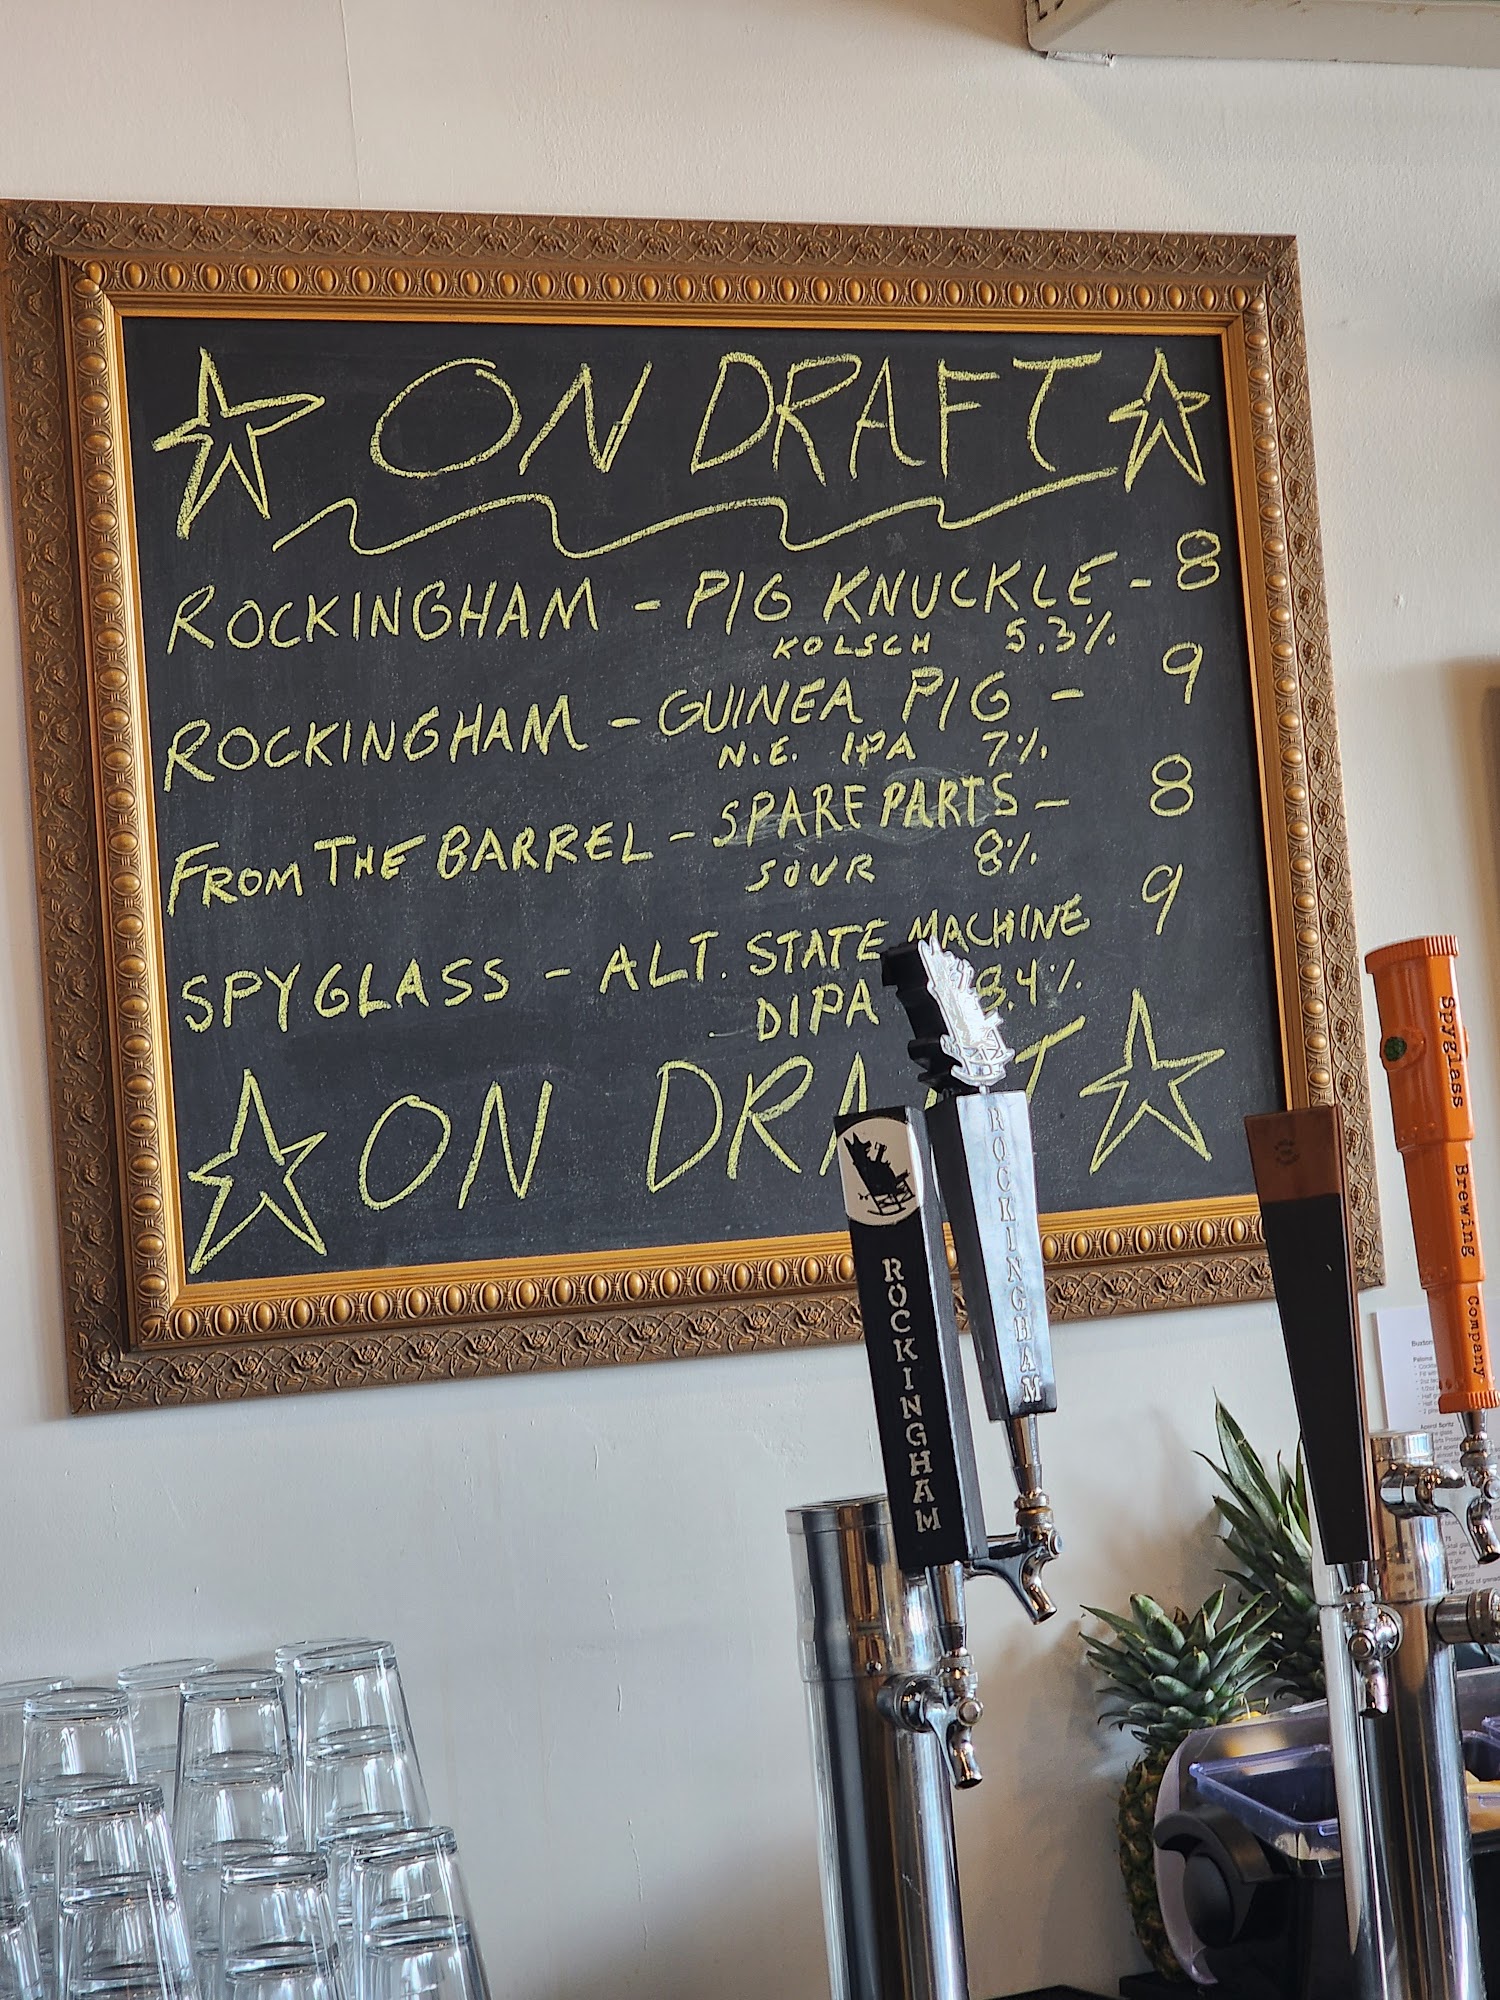 ON DRAFT
ROCKINGHAM - PIG KNUCKLE - 8
KOLSCH 5.3%
ROCKINGHAM - GUINEA PIG - 9
N.E. IPA 7%
FROM THE BARREL - SPARE PARTS - 8
SOUR 8%
SPYGLASS - ALT. STATE MACHINE 9
DIPA 8.4%
ON DRAFT
ROCKINGHAM
ROCKINGHAM
Spyglass Brewing Company
Paloma
Aperol Spritz